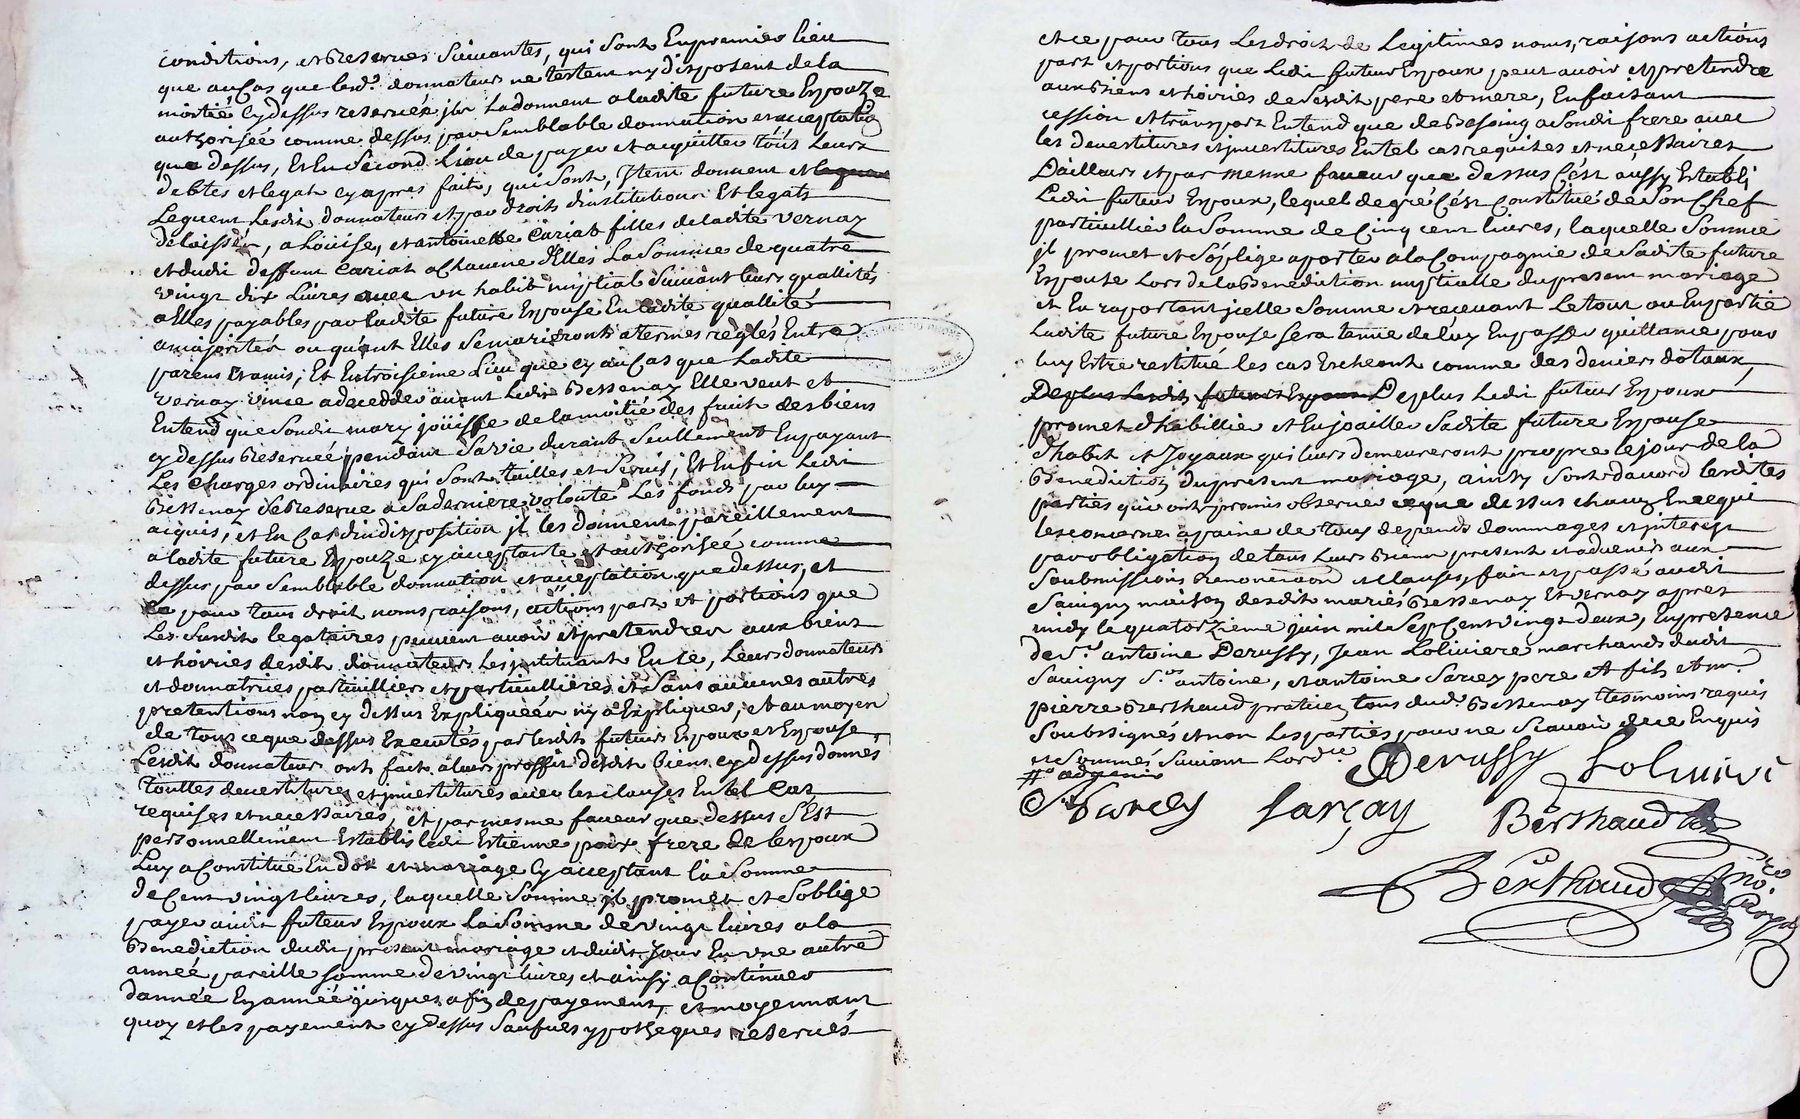 conditions, et Reserves Suivantes, qui Sont En premier lieu
que au Cas que lesd.s donnateurs ne testent ny disposent de la
moitié Cy dessus reservée jls La donnent a ladite future Espouze
authorisée comme dessus par Semblable donnation et acceptation
que dessus, Et En Second Lieu de payer et acquitter tous Leurs
debtes et legats cy apres faits, qui Sont, Jtem donnent et leguent
Leguent Lesdits donnateurs et par droits dinstitutions Et legats
delaissés, a Loüise, et antoinette Cariat filles deladite Vernay
et dudit deffunt Cariat a Chacune dElles La Somme de quatre
vingt dix Livres avec un habit nuptial Suivant leurs quallités
a Elles payables par ladite future Espouse En ladite quallité
a majorités ou quant Elles Se marieront a termes reglés Entre
parens et amis; Et En troisieme Lieu que cy au Cas que Ladite
Vernay vince a decedder avant Ledit Bessenay Elle veut et
Entend que Sondit mary joüisse de la moitié des fruits des biens
cy dessus Reservée pendant Sa vie durant Seullement En payant
Les Charges ordinaires qui Sont tailles et Servis; Et En fin Ledit
Bessenay Se Reserve a Sa derniere volonté Les fonds par luy
acquis, et En Cas dindisposition jl les donnent pareillement
a ladite future Espouze cy acceptante et authorisée comme
dessus par Semblable donnation et acceptation que dessus, et
ce pour tous droits noms, raisons, actions parts et portions que
Les Susdits legataires peuvent avoir et pretendre aux biens
et hoiries desdits donnateurs Les instituant En ce, Leurs donnateurs
et donnatrices particulliers et particullieres et Sans aucunes autres
pretentions non cy dessus Expliquées ny a Expliquer, et au moyen
de tous ce que dessus Executés par lesdits futurs Espoux et Espouse
Lesdits donnateurs ont fait a leur proffit desdits biens cy dessus donnés
touttes devestitures et jnvestitures avec les clauses En tel Cas
requises et necessaires, Et par mesme faveur que dessus S'Est
personnellement Establis ledit Estienne frere de lespoux
Luy a Constitué En dot et mariage Cy acceptant la Somme
de Cent vingt livres, laquelle Somme jl promet et Soblige
payer audit futeur Espoux La Somme de vingt livres a la
Benediction dudit present mariage et dudit jour En une autre
année pareille Somme de vingt livres et ainsy a Continuer
dannée En année jusques a fin de payement, et moyennant
quoy et les payements cy dessus Saufues ypotheques reservés
et ce pour tous Les droits de Legitimes noms, raisons actions
part et portions que Ledit futur Espoux peut avoir et pretendre
aux Biens et hoiries de Sesdits pere et mere, En faisant
cession et transport Entend que de Besoing a Sondit frere avec
les devestitures et jnvestitures En tel cas requises et necessaires,
D'ailleurs et par mesme faveur que dessus C'est aussy Establi
Ledit futeur Espoux, lequel de gré C'est Constitué de Son Chef
particullier la Somme de Cinq cent livres, laquelle Somme
jl promet et S'oblige aporter a la Compagnie de Sadite future
Espouse Lors de la Benediction nuptialle du present mariage
et En raportant jcelle Somme et recevant Le tout ou En partie
Ladite future Espouse Sera tenue de luy En passer quittance pour
luy Estre restitué les cas Escheant comme des deniers dotaux,
De plus Lesdits futurs Espoux De plus Ledit futur Espoux
promet d'habillier et Enjoailler Sadite future Espouse
d'habits et Joyaux qui leurs demeureront propre le jour de la
Benediction du present mariage, ainsy Sont d'acord lesdites
parties qui ont promis observer ce que dessus chacun En ce qui
les concerne a paine de tous depends dommages et jnterets
par obligation de tous leurs Biens present et advenir aux
Soubmissions Renonciaons et clauses, fait et passé audit
Savigny maison desdits mariés Bessenay Et Vernay apres
midy le quatorzieme juin mil Sept Cent vingt deux, En presence
de S.r antoine Derussy, Jean Loliviere marchands dudit
Savigny S.rs antoine, et antoine Sarcey pere Et fils et m.e
pierre Berthaud praticien tous dud.t Bessenay tesmoins requis
Soubssignés et non Les parties pour ne Scavoir de ce Enquis
et Sommés Suivant Lord.ce
Derussy Lolivire
Sarcey Sarcay Berthaud
Berthaud No.re Royal